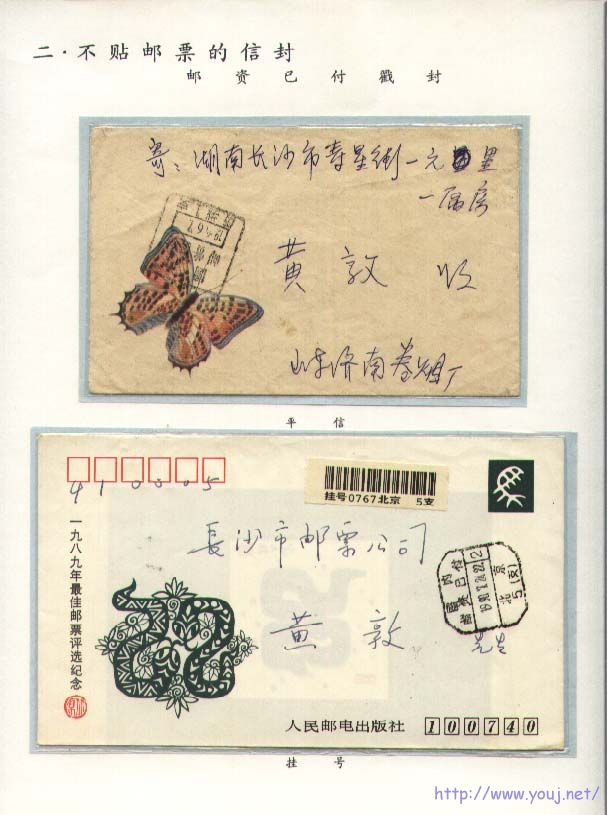 二·不贴邮票的信封
邮资已付戳封
寄：湖南长沙市寿星街一元里
黄敦 收
山东济南卷烟厂
平信
410005
挂号0767北京 5支
一九八九年最佳邮票评选纪念
长沙市邮票公司
黄敦
先生
国内邮资已付
北京
5(支)
人民邮电出版社 100740
挂号
http://www.youj.net/